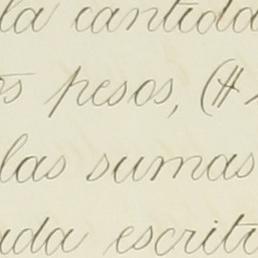 la cantida
os pesos, (#
las sumas
ada escritu